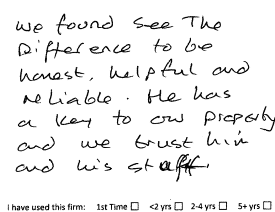 we found see The
Difference to be
honest, helpful and
reliable. He has
a key to our property
and we trust him
and his staff.
I have used this firm: 1st Time ☐ <2 yrs ☐ 2-4 yrs ☐ 5+ yrs ☐